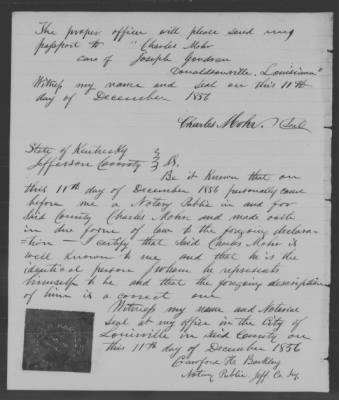 The proper officer will please send my
passport to "Charles Mohr
care of Joseph Gondran
Donaldsonville, Louisiana"
Witness my name and seal on this 11th
day of December 1856
Charles Mohr. Seal
State of Kentucky
Jefferson County } Ss,
Be it Known that on
this 11th day of December 1856 personally came
before me a Notary Public in and for
said County Charles Mohr and made oath
in due form of law to the foregoing declara
-tion — certify that said Charles Mohr is
well known to me, and that he is the
identical person whom he represents
himself to be and that the foregoing description
of him is a correct one
Witness my name and Notarial
seal at my office in the City of
Louisville in said County on
this 11th day of December 1856
Notary Public Jeff Co Ky